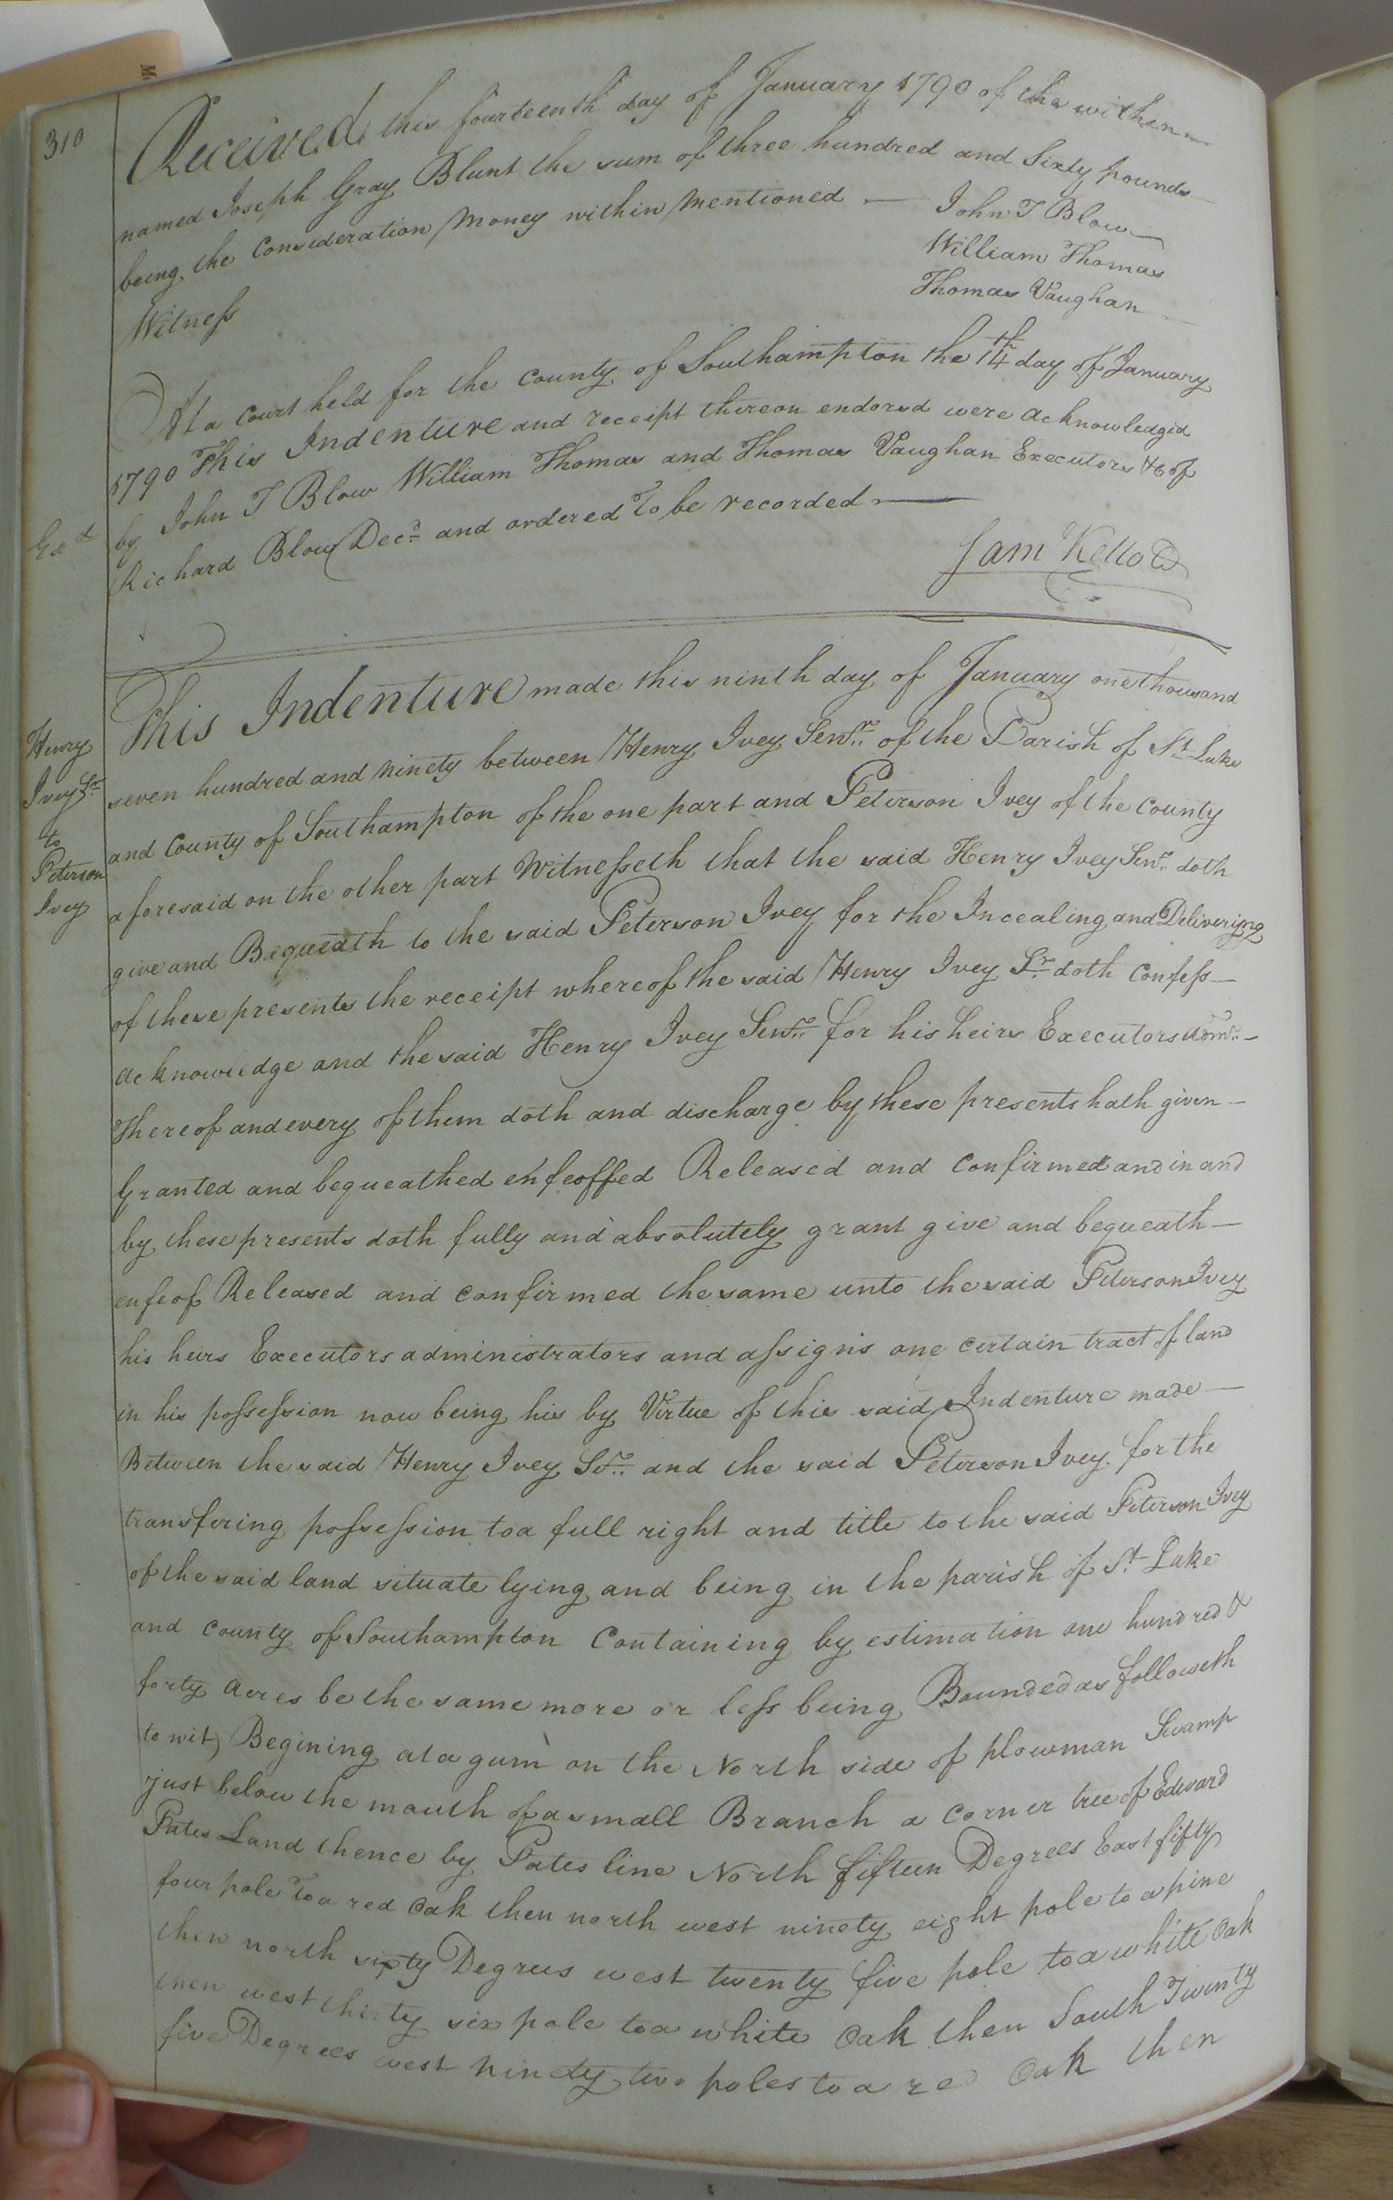 310
Received this fourteenth day of January 1790 of the within
named Joseph Gray Blunt the sum of three hundred and Sixty pounds
being the Consideration Money within Mentioned —
John T Blow
William Thomas
Thomas Vaughan
Witness
At a Court held for the County of Southampton the 14th day of January
1790 This Indenture and receipt thereon endorsd were acknowledged
by John T Blow William Thomas and Thomas Vaughan Executors &c of
Richard Blow Decd and ordered To be recorded —
Exd
Sam Kello
Henry
Ivey Sr
to
Peterson
Ivey
This Indenture made this ninth day of January one thousand
seven hundred and Ninety between Henry Ivey Senr. of the Parish of St Luke
and County of Southampton of the one part and Peterson Ivey of the County
aforesaid on the other part Witnesseth that the said Henry Ivey Senr. doth
give and Bequeath to the said Peterson Ivey for the Incealing and Deliverijng
of these presents the receipt whereof the said Henry Ivey Sr. doth Confess —
acknowledge and the said Henry Ivey Senr. for his heirs Executors Admrs. —
Thereof and every of them doth and discharge by these presents hath given —
Granted and bequeathed enfeoffed Released and Confirmed and in and
by these presents doth fully and absolutely grant give and bequeath —
enfeof Released and confirmed the same unto the said Peterson Ivey
his heirs Executors administrators and assigns one certain tract of land
in his possession now being his by Virtue of this said Indenture made —
Between the said Henry Ivey Sr. and the said Peterson Ivey for the
transfering possession to a full right and title to the said Peterson Ivey
of the said land situate lying and being in the parish of St. Luke
and County of Southampton Containing by estimation one hundred &
forty acres be the same more or less being Bounded as followeth
to wit) Begining at a gum on the North side of plowman Swamp
just below the mouth of a small Branch a corner tree of Edward
Pates Land thence by Pates line North fifteen Degrees East fifty
four pole To a red oak then north west ninety eight pole to a pine
then north sixty Degrees west twenty five pole to a white oak
then west thirty six pole to a white oak then South Twenty
five Degrees west ninety two poles to a red oak then